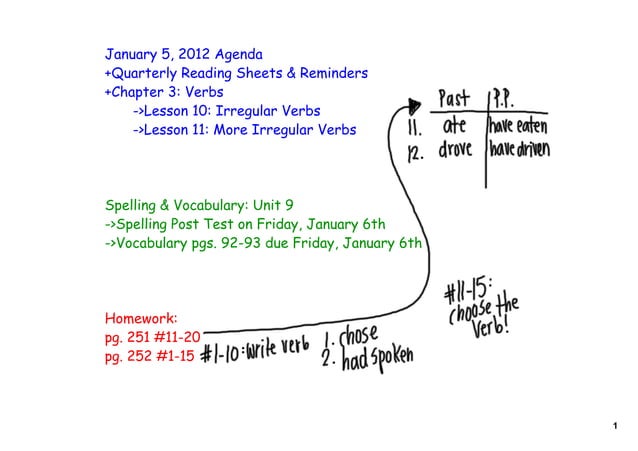 January 5, 2012 Agenda
+Quarterly Reading Sheets & Reminders
+Chapter 3: Verbs
->Lesson 10: Irregular Verbs
->Lesson 11: More Irregular Verbs
Past P.P.
11. ate have eaten
12. drove have driven
Spelling & Vocabulary: Unit 9
->Spelling Post Test on Friday, January 6th
->Vocabulary pgs. 92-93 due Friday, January 6th
Homework:
pg. 251 #11-20
pg. 252 #1-15 #1-10: write verb
1. chose
2. had spoken
#11-15:
choose the
verb!
1